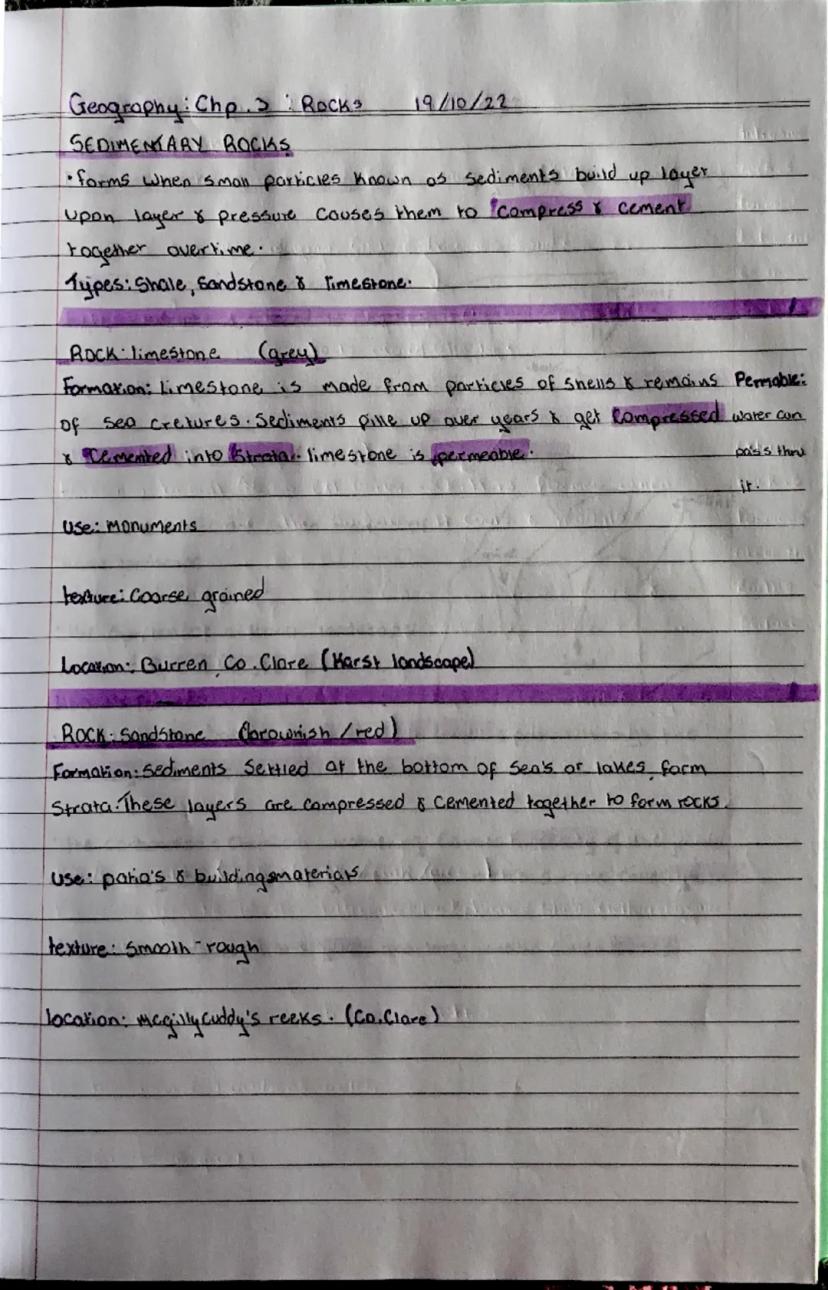 Geography: Chp. 3 : Rocks 19/10/22
SEDIMENTARY ROCKS
• forms when small particles known as sediments build up layer
upon layer & pressure causes them to "compress & cement
together overtime.
Types: Shale, Sandstone & limestone.
ROCK: limestone (grey)
Formation: Limestone is made from particles of shells & remains Permable:
of sea cretures. Sediments pille up over years & get Compressed water can
& Cemented into Strata. limestone is permeable. pass thru
it.
Use: Monuments
texture: Coarse, grained
Location: Burren, Co. Clare (Karst landscape)
ROCK: Sandstone (brownish / red)
Formation: Sediments Settled at the bottom of sea's or lakes, form
Strata. These layers are compressed & cemented together to form rocks.
Use: patio's & buildingsmaterials
texture: Smooth - rough
location: mcgillycuddy's reeks. (Co. Clare)